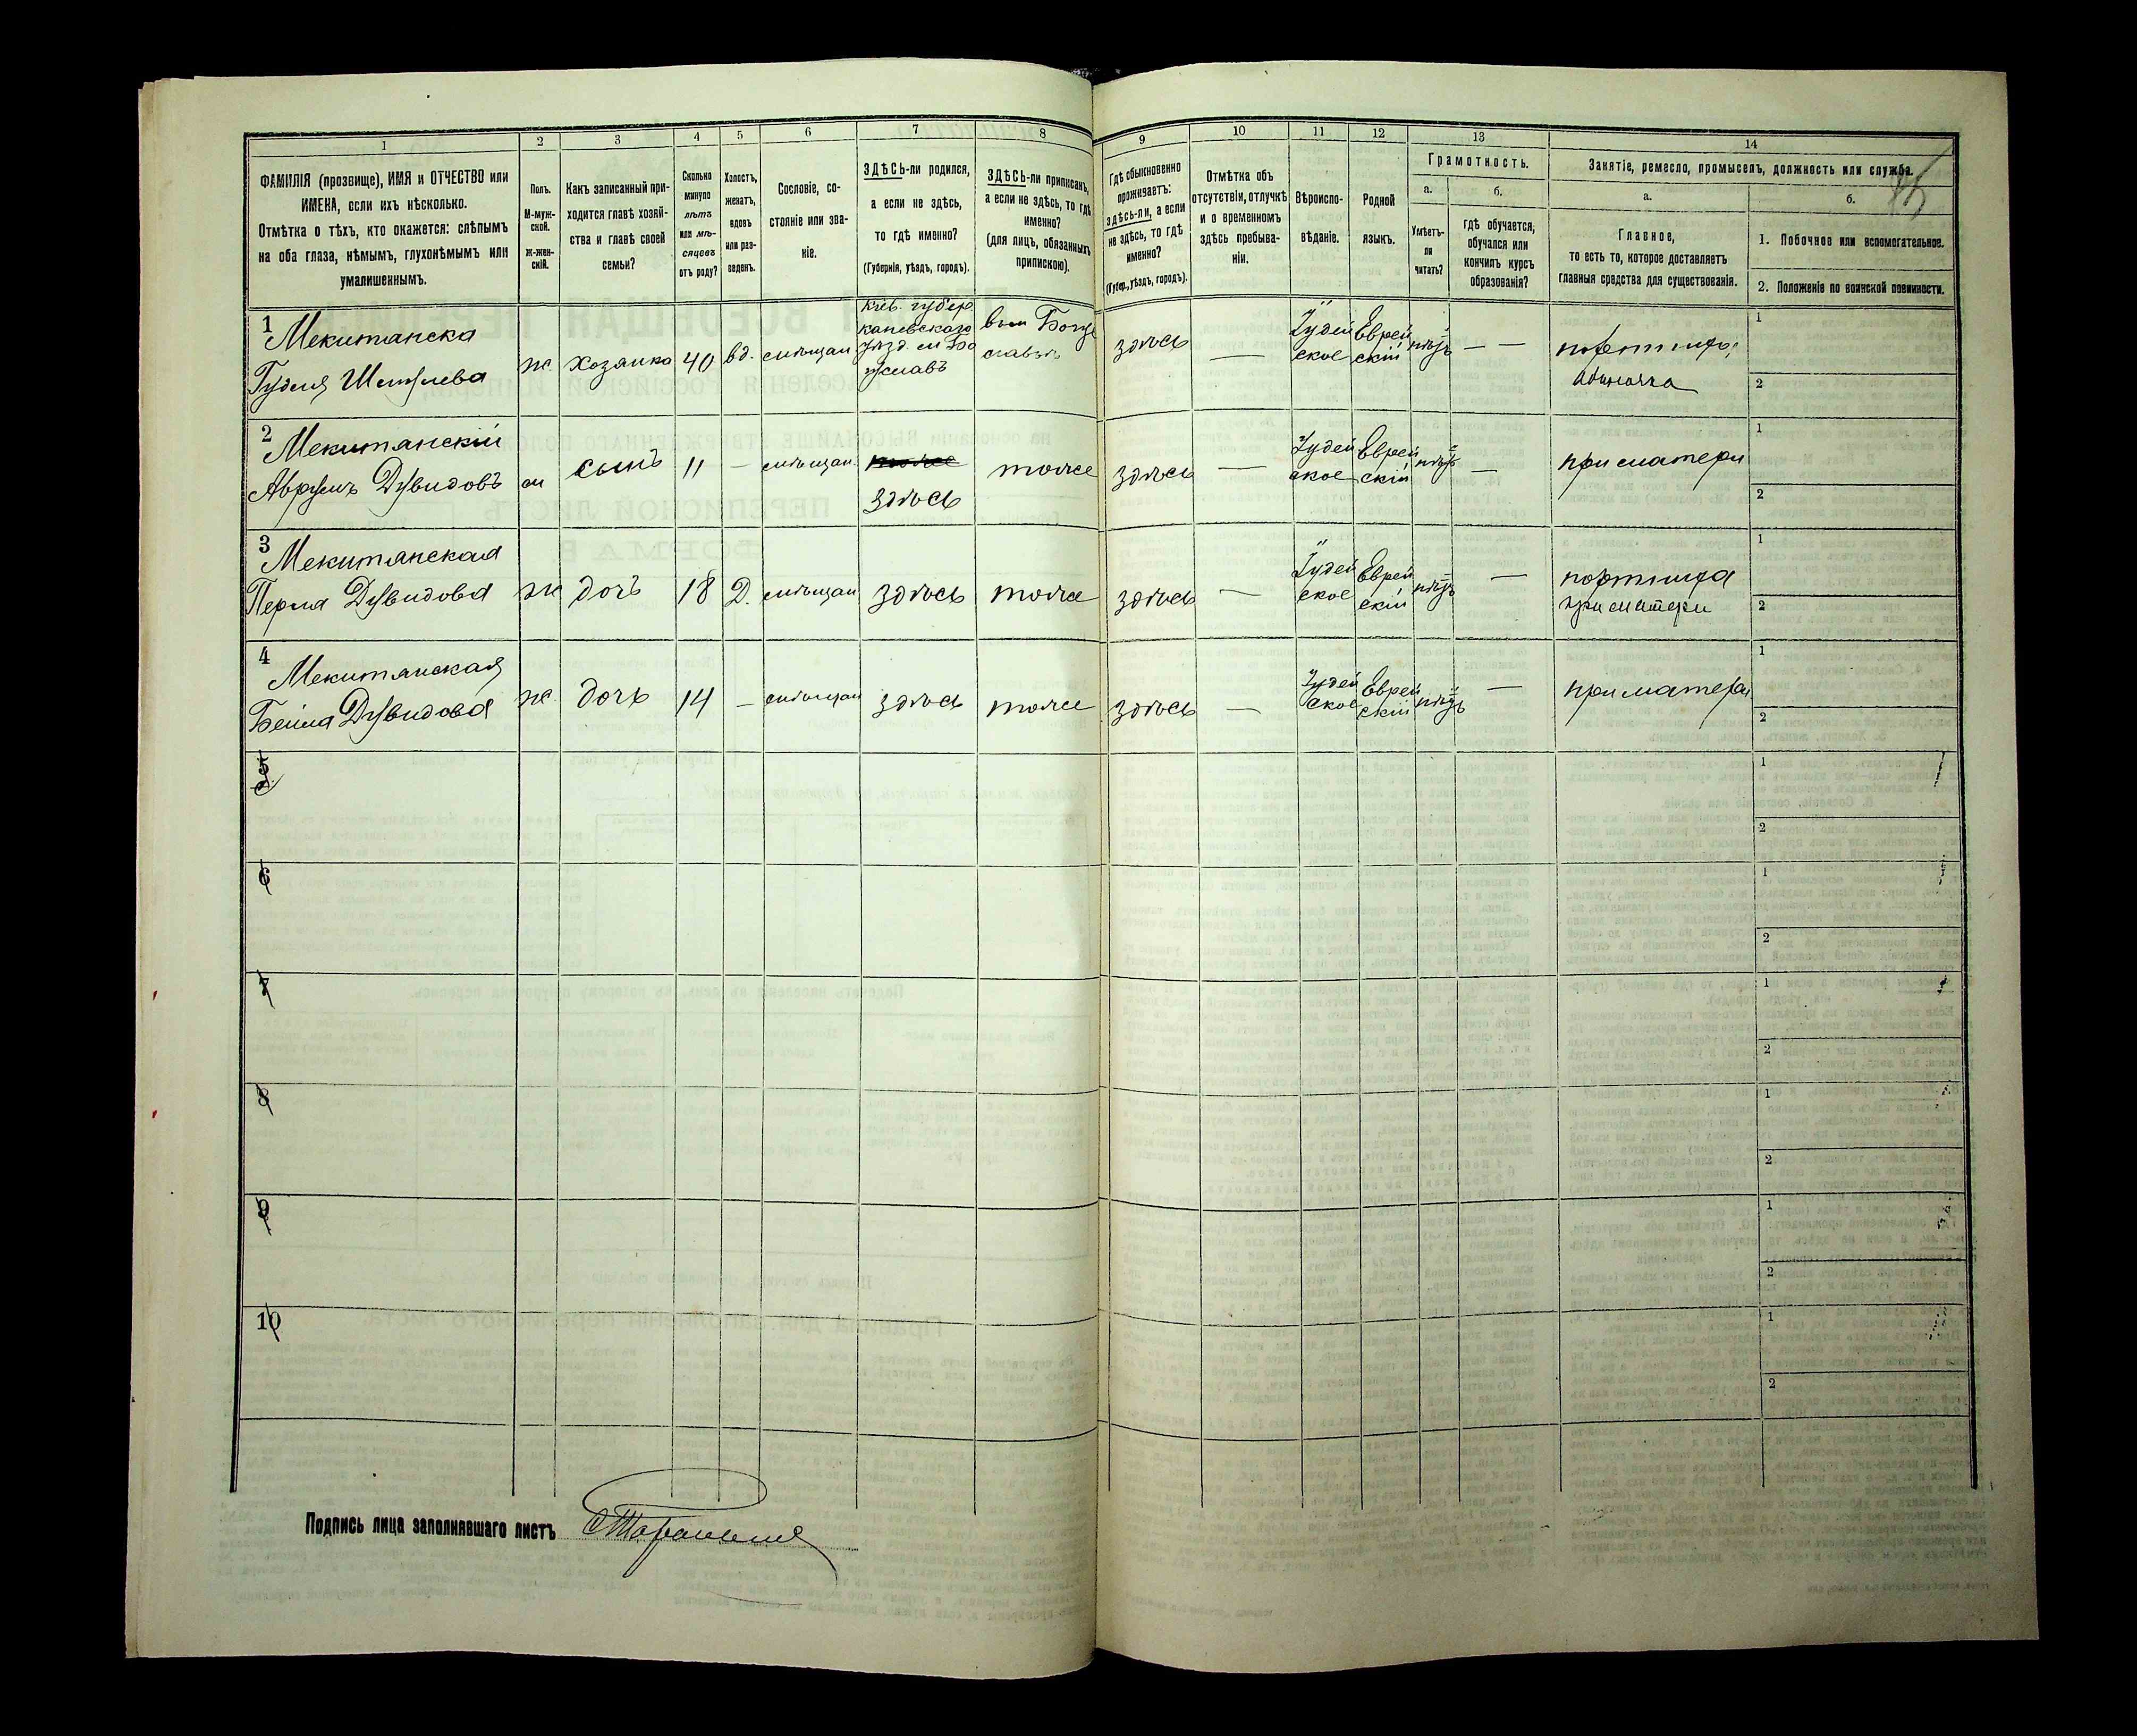 1
2
3
4
5
6
7
8
9
10
11
12
13
14
ФАМИЛІЯ (прозвище), ИМЯ и ОТЧЕСТВО или
ИМЕНА, если ихъ нѣсколько.
Отмѣтка о тѣхъ, кто окажется: слѣпымъ
на оба глаза, нѣмымъ, глухонѣмымъ или
умалишеннымъ.
Полъ.
М-муж-
ской.
ж-жен-
скій.
Какъ записанный при-
ходится главѣ хозяй-
ства и главѣ своей
семьи?
Сколько
минуло
лѣтъ
или мѣ-
сяцевъ
отъ роду?
Холостъ,
женатъ,
вдовъ
или раз-
веденъ.
Сословіе, со-
стояніе или зва-
ніе.
ЗДѢСЬ-ли родился,
а если не здѣсь,
то гдѣ именно?
(Губернія, уѣздъ, городъ).
ЗДѢСЬ-ли приписанъ,
а если не здѣсь, то гдѣ
именно?
(для лицъ, обязанныхъ
припискою).
Гдѣ обыкновенно
проживаетъ:
здѣсь-ли, а если
не здѣсь, то гдѣ
именно?
(Губер., уѣздъ, городъ).
Отмѣтка объ
отсутствіи, отлучкѣ
и о временномъ
здѣсь пребыва-
ніи.
Вѣроиспо-
вѣданіе.
Родной
языкъ.
Грамотность.
а.
Умѣетъ-
ли
читать?
б.
гдѣ обучается,
обучался или
кончилъ курсъ
образованія?
Занятіе, ремесло, промыселъ, должность или служба.
а.
Главное,
то есть то, которое доставляетъ
главныя средства для существованія.
б.
1. Побочное или вспомогательное.
2. Положеніе по воинской повинности.
1 Мекитанска
Гудля
ж хозяика 40 вд. мѣщан
Кіев. губер.
каневскаго
уѣзд. м Бо
гуславъ
здѣсь —
Іудей
ское
Еврей
скій
— —
1
2
2 Мекитанскій
Аврумъ Дувидовъ
м сынъ 11 — мѣщан
тоже
здѣсь
тоже
здѣсь —
Іудей
ское
Еврей
скій
—
при матери
1
2
3 Мекитанская
Перла Дувидова
ж дочъ 18 Д. мѣщан здѣсь тоже
здѣсь —
Іудей
ское
Еврей
скій
—
портниха
при матери
1
2
4 Мекитанская
Бейла Дувидова
ж дочь 14 — мѣщан здѣсь тоже
здѣсь —
Іудей
ское
Еврей
скій
—
при матери
1
2
5
1
2
6
1
2
7
1
2
8
1
2
9
1
2
10
1
2
Подпись лица заполнявшаго листъ